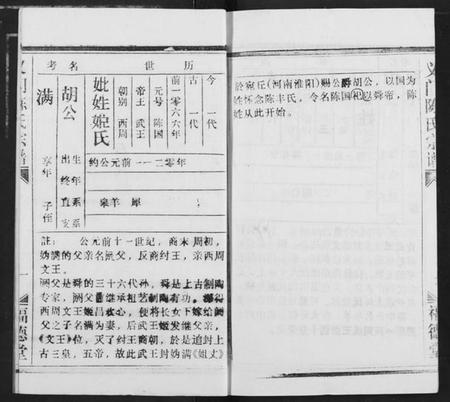 历世名考
今一代
古一代
前一〇六六年
元号 陈国
帝王 武王
朝别 西周
妣姓姬氏
胡公
满
生年 约公元前一一二零年
出
终年
享年
直系 皋羊 犀
支系
子侄
註： 公元前十一世纪，商末周初，
妫满的父亲名阏父，反商纣王，亲西周
文王。
阏父是舜的三十六代孙，舜是上古制陶
专家，阏父继承祖艺制陶有功，
西周文王姬昌欢心，便将长女下嫁给阏
父之子名满为妻，后武王姬发继父亲，
《文王》位，灭了纣王商朝，於是追封上
古三皇，五帝，故此武王封妫满《姐丈》
义门陈氏宗谱
一
福德堂
於宛丘(河南淮阳)赐公爵胡公，以国为
姓怀念陈丰氏，令名陈国祀舜帝，陈
姓从此开始。
义门陈氏宗谱
福德堂